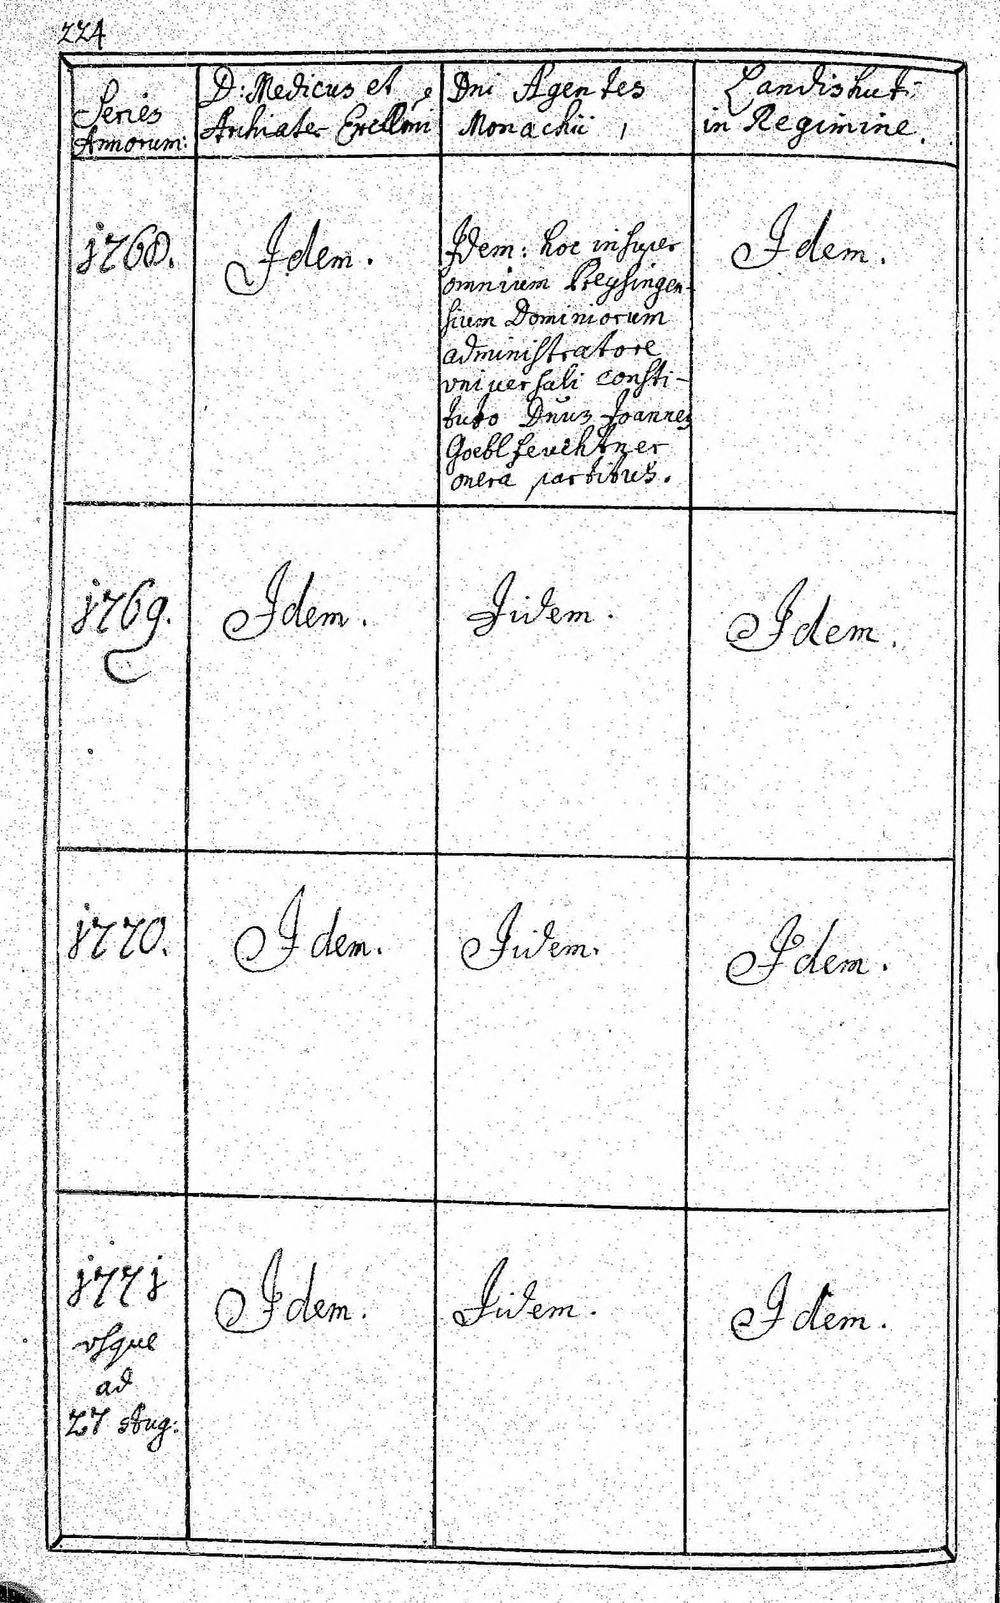 224
Series
Annorum:
D: Medicus et
Archiater
Dni Agentes
Monachii
Landishuti
in Regimine.
1768.
Idem.
Idem: hoc insuper
omnium Preysingen-
sium Dominiorum
administratore
vniversali consti-
tuto Dnus Joannes
Goebl Feuchtner
onera partitus.
Idem.
1769.
Idem.
Iidem.
Idem.
1770.
Idem.
Iidem.
Idem.
1771
vsque
ad
27 Aug:
Idem.
Iidem.
Idem.